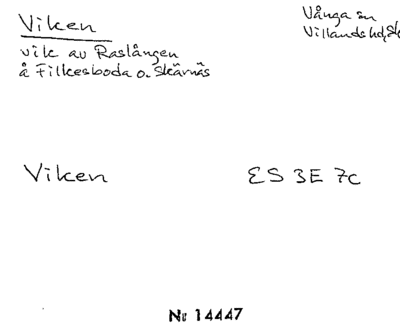 Viken
Vånga sn
Villands hd, Sk
vik av Raslången
å Filkesboda o. Skärnäs
Viken
ES 3E 7c
Nr 14447